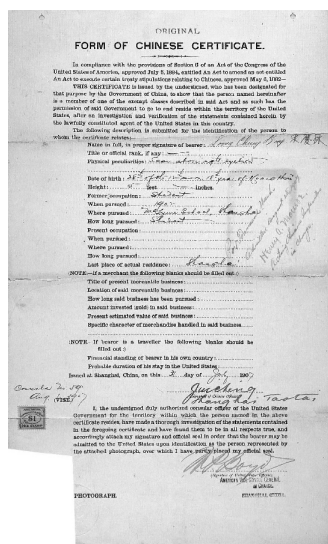 ORIGINAL
FORM OF CHINESE CERTIFICATE.
In compliance with the provisions of Section 6 of an Act of the Congress of the
United States of America, approved July 5, 1884, entitled An Act to amend an act entitled
An Act to execute certain treaty stipulations relating to Chinese, approved May 6, 1882—
THIS CERTIFICATE is issued by the undersigned, who has been designated for
that purpose by the Government of China, to show that the person named hereinafter
is a member of one of the exempt classes described in said Act and as such has the
permission of said Government to go to and reside within the territory of the United
States, after an investigation and verification of the statements contained herein by
the lawfully constituted agent of the United States in this country.
The following description is submitted for the identification of the person to
whom the certificate relates:
Name in full, in proper signature of bearer:
Title or official rank, if any:
Physical peculiarities: Scar above right eyebrow
Date of birth:
Height: 5 feet inches.
Former occupation: Student
When pursued:
Where pursued: School, Shanghai
How long pursued:
Present occupation:
When pursued:
Where pursued:
How long pursued:
Last place of actual residence: Shanghai
(NOTE.—If a merchant the following blanks should be filled out:)
Title of present mercantile business:
Location of said mercantile business:
How long said business has been pursued:
Amount invested (gold) in said business:
Present estimated value of said business:
Specific character of merchandise handled in said business:
(NOTE.—If bearer is a traveller the following blanks should be
filled out:)
Financial standing of bearer in his own country:
Probable duration of his stay in the United States:
Issued at Shanghai, China, on this day of July 1907
Jui Cheng
Shanghai Taotai
(VISE.)
I, the undersigned duly authorized consular officer of the United States
Government for the territory within which the person named in the above
certificate resides, have made a thorough investigation of the statements contained
in the foregoing certificate and have found them to be in all respects true, and
accordingly attach my signature and official seal in order that the bearer may be
admitted to the United States upon identification as the person represented by
the attached photograph, over which I have partly placed my official seal.
American Vice Consul General,
in Charge,
SHANGHAI, CHINA.
PHOTOGRAPH.